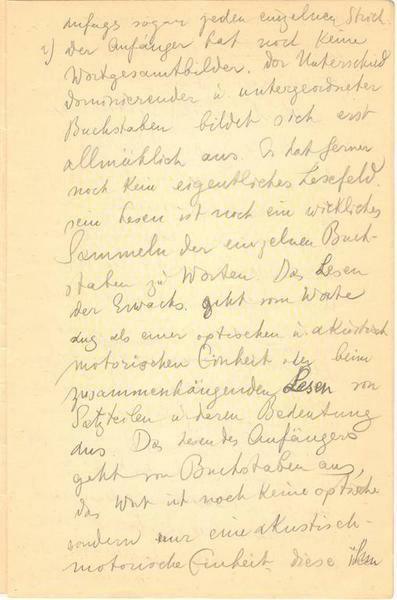 anfangs sogar jeden einzelnen Strich.
2) Der Anfänger hat noch keine
Wortgesamtbilder. Der Unterschied
dominierender u. untergeordneter
Buchstaben bildet sich erst
allmählich aus. Er hat ferner
noch kein eigentliches Lesefeld.
sein Lesen ist noch ein wirkliches
Sammeln der einzelnen Buch-
staben zu Worten. Das Lesen
der Erwachs. geht vom Worte
aus als einer optischen u. akustisch
motorischen Einheit oder beim
zusammenhängenden Lesen von
Satzteilen u. deren Bedeutung
aus. Das Lesen des Anfängers
geht von Buchstaben aus,
das Wort ist noch keine optische
sondern nur eine akustisch-
motorische Einheit. diese